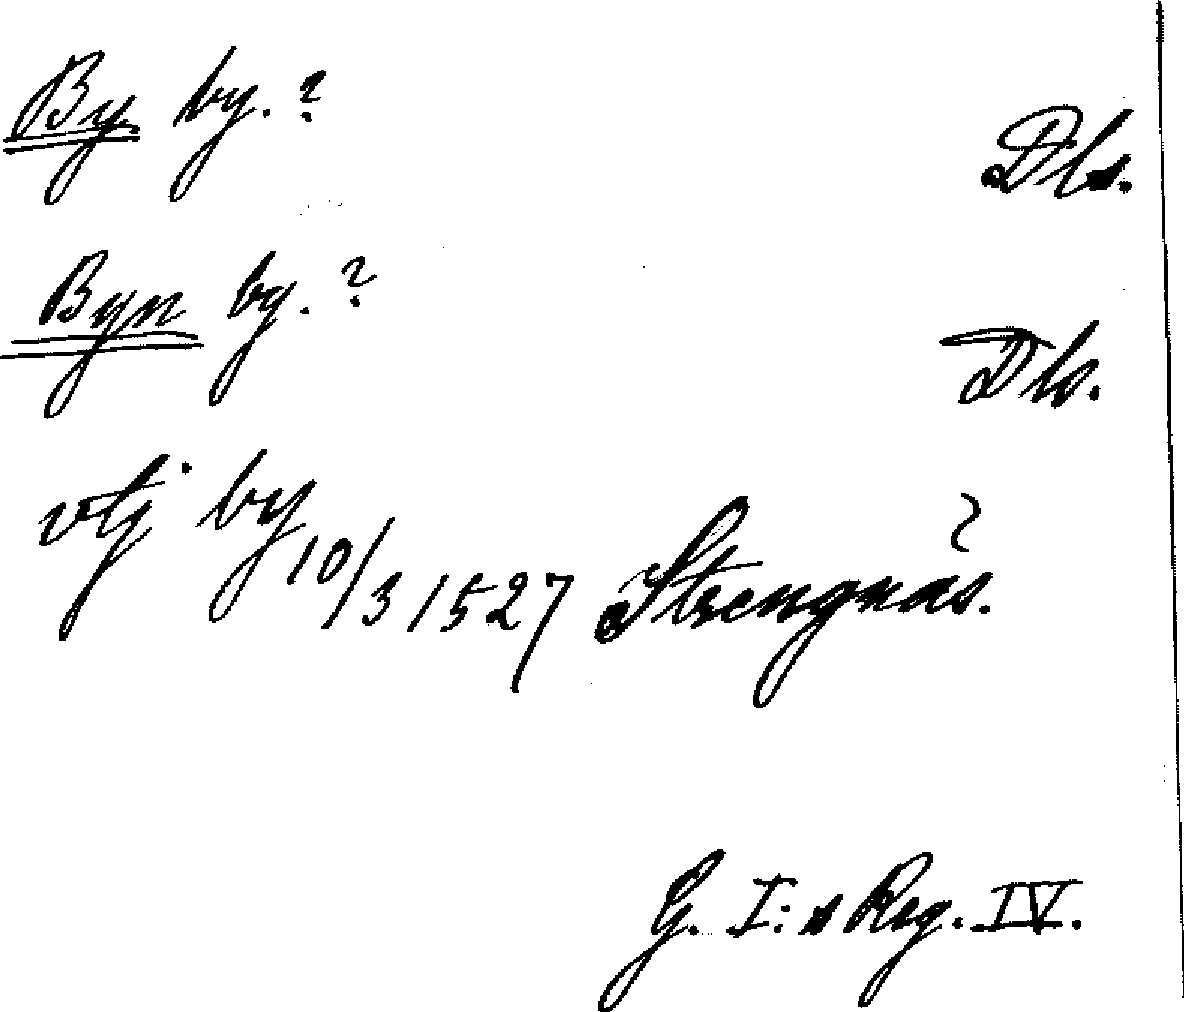 By by. ? Dls.
Byn by. ? Dls.
vtj by 10/3 1527 Strengnäs.
G. I:s Reg. IV.